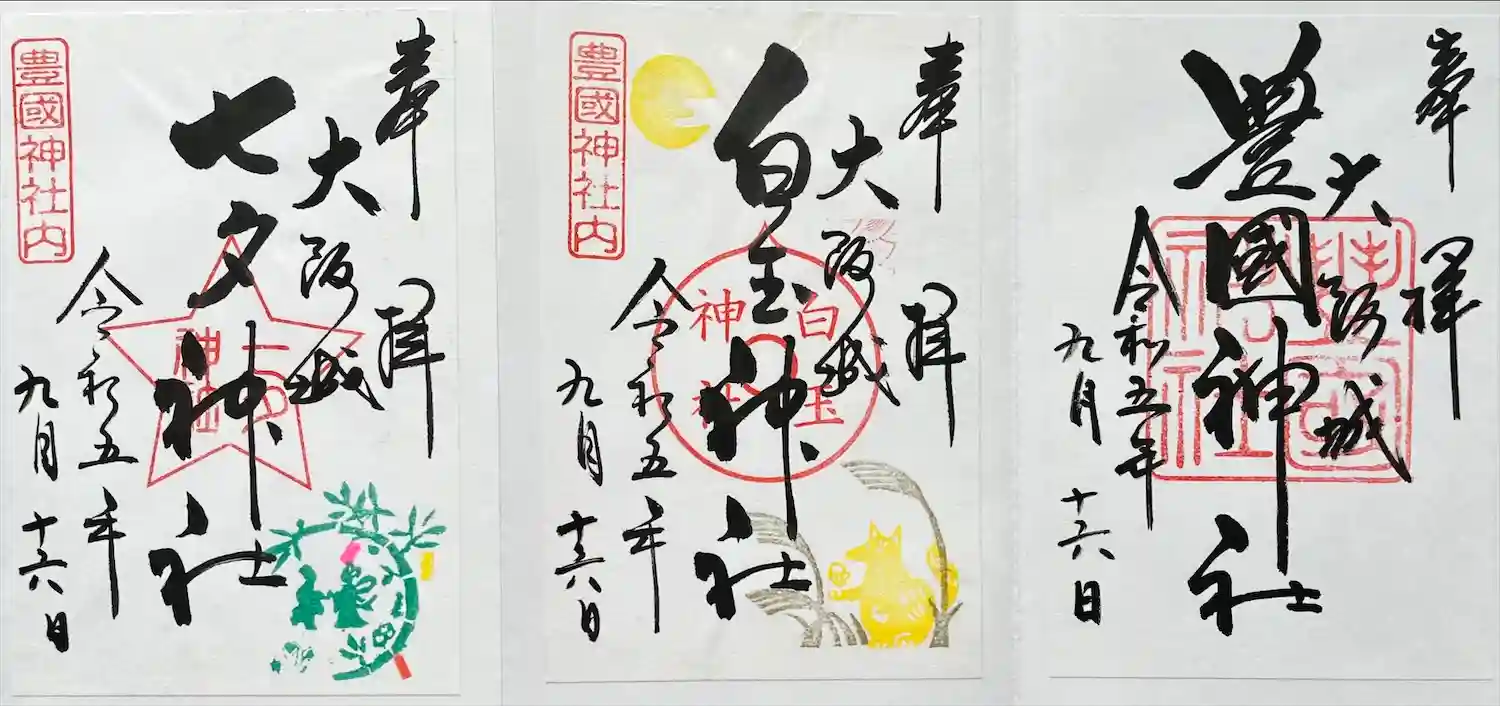 奉拝
大阪城
七夕神社
令和五年
九月十六日
豊國神社内
七夕
神社
奉拝
大阪城
白玉神社
令和五年
九月十六日
豊國神社内
白玉
神社
奉拝
大阪城
豊國神社
令和五年
九月十六日
豊國
神社